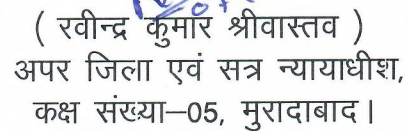 ( रवीन्द्र कुमार श्रीवास्तव )
अपर जिला एवं सत्र न्यायाधीश,
कक्ष संख्या–05, मुरादाबाद।